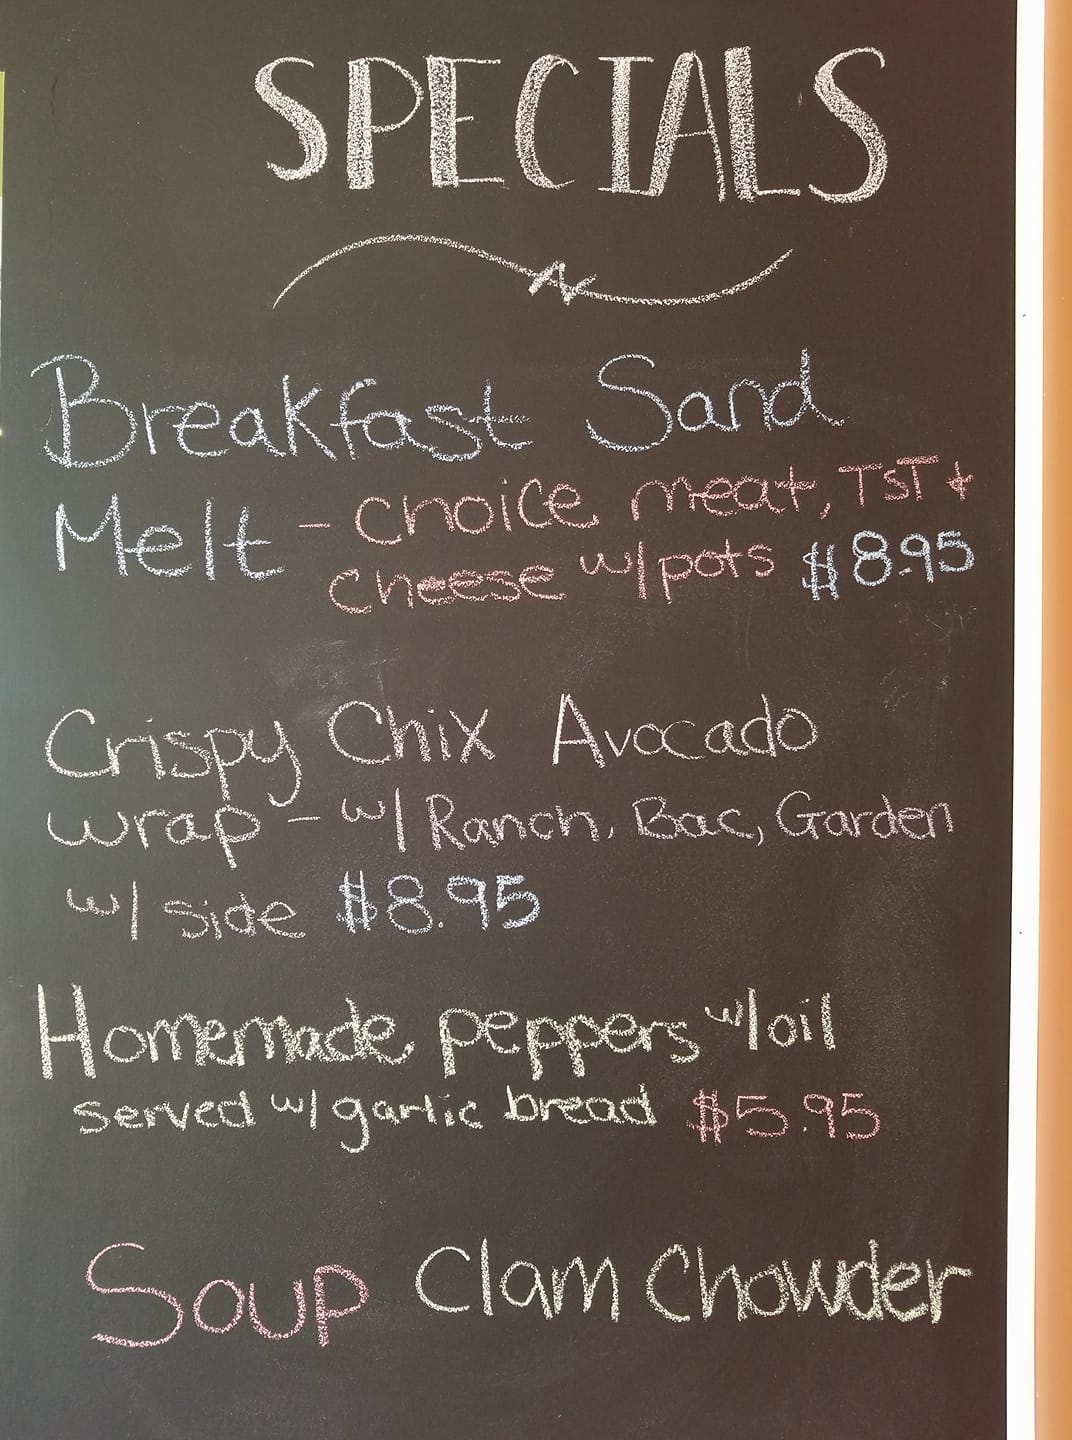 SPECIALS
Breakfast Sand
Melt - choice meat, TST &
cheese w/pots $8.95
Crispy Chix Avocado
wrap - w/ Ranch, Bac, Garden
w/ side $8.95
Homemade peppers w/oil
served w/ garlic bread $5.95
Soup Clam Chowder